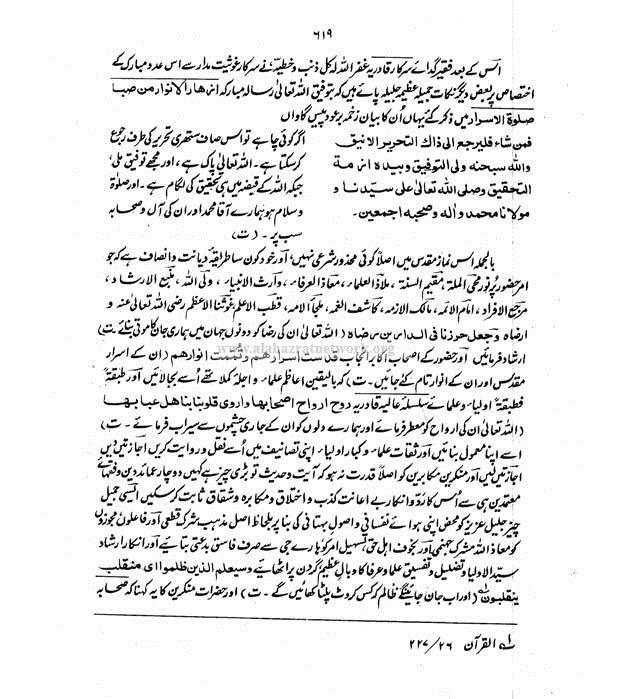 ۶۱۹
اس کے بعد فقیر گدائے سرکار قادریہ غفر اللہ لہ کل ذنب و خطیئۃ نے سرکار غوثیت مدار سے اس عدد مبارک کے
اختصاص پر بعض دیگر نکات جمیلہ عظیمہ جلیلہ پائے ہیں کہ بتوفیق اللہ تعالیٰ رسالہ مبارکہ انھار الانوار من صبا
صلوۃ الاسرار میں ذکر کئے یہاں اُن کا بیان
فمن شاء فلیرجع الی ذاك التحریر الانیق
واللہ سبحنہ ولی التوفیق وبیدہ ازمة
التحقیق وصلی اللہ تعالیٰ علی سیّدنا و
مولانا محمد واٰلہ وصحبہ اجمعین۔
اگر کوئی چاہے تو اس صاف ستھری تحریر کی طرف رجوع
کر سکتا ہے۔ اللہ تعالیٰ پاک ہے، اور مجھے توفیق ملی،
جبکہ اللہ کے قبضہ میں ہی تحقیق کی لگام ہے۔ اور صلوٰۃ
وسلام ہو ہمارے آقا محمد اور ان کی آل و صحابہ
سب پر۔ (ت)
بالجملہ اس نماز مقدس میں اصلاً کوئی محذور شرعی نہیں، اور خود کون سا طریقہ دیانت و انصاف ہے کہ جو
امر حضور پُر نور محی الملۃ، مقیم السنۃ، ملاذ العلماء، معاذ العرفاء، وارث الانبیاء، ولی اللہ، منبع الارشاد،
مرجع الافراد، امام الائمہ، مالک الازمہ، کاشف الغمہ، ملجأ الامہ، قطب الاعظم غوثنا الاعظم رضی اللہ تعالیٰ عنہ و
ارضاہ وجعل حرزنا فی الدارین رضاہ (اللہ تعالیٰ ان کی رضا کو دونوں جہان میں ہماری جان کا بنائے ت)
ارشاد فرمائیں اور حضور کے اصحاب اکابر انجاب قدست اسرارھم وتممت انوارھم (ان کے اسرار
مقدس اور ان کے انوار تام کئے جائیں۔ ت) کہ بالیقین اعاظم علماء و اجلہ کملا تھے اُسے بجا لائیں اور طبقۃً
فطبقۃً اولیاء و علمائے سلسلہ عالیہ قادریہ روح ارواح اصحابھا واروی قلوبنا بناھل عبابھا
(اللہ تعالیٰ ان کی ارواح کو معطر فرمائے اور ہمارے دلوں کو ان کے جاری چشموں سے سیراب فرمائے۔ ت)
اسے اپنا معمول بنائیں اور ثقات علماء و کبار اولیاء اپنی تصانیف میں اُسے نقل و روایت کریں اجازتیں دیں
اجازتیں لیں اور منکرین مکابرین کو اصلاً قدرت نہ ہو کہ آیت و حدیث تو بڑی چیز ہے کہیں دو چار عمائد دین و فقہائے
معتمدین ہی سے اُس کا رد و انکار بے اعانت کذب و اختلاق و مکابرہ و شقاق ثابت کر سکیں ایسی جمیل
چیز جلیل عزیز کو محض اپنی ہوائے نفسانی و اصول بہتانی کی بنا پر بلحاظ اصل مذہب شرک قطعی اور فاعلوں مجوزوں
کو معاذ اللہ مشرک جہنمی اور بخوف اہل حق بتسہیل امر کو ہارے جی سے صرف فاسق بدعتی بتائیے اور انکار ارشاد
سید الاولیا و تضلیل و تفسیق علماء و عرفا کا وبال عظیم گردن پر اٹھائیے وسیعلم الذین ظلموا ای منقلب
ینقلبون (اور اب جان جائینگے ظالم کہ کس کروٹ پلٹا کھائیں گے۔ ت) اور حضرات منکرین کا یہ کہنا کہ صحابہ
لہ القرآن ۲۶/۲۲۷
www.alahazratnetwork.org